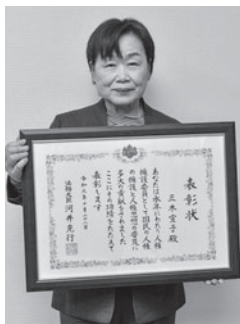 表彰状
三木宣子殿
あなたは永年にわたり人権
擁護委員として国民の人権
の擁護と人権思想の普及に
多大の貢献をされました
ここにその功績をたたえて
表彰します
法務大臣 河井克行